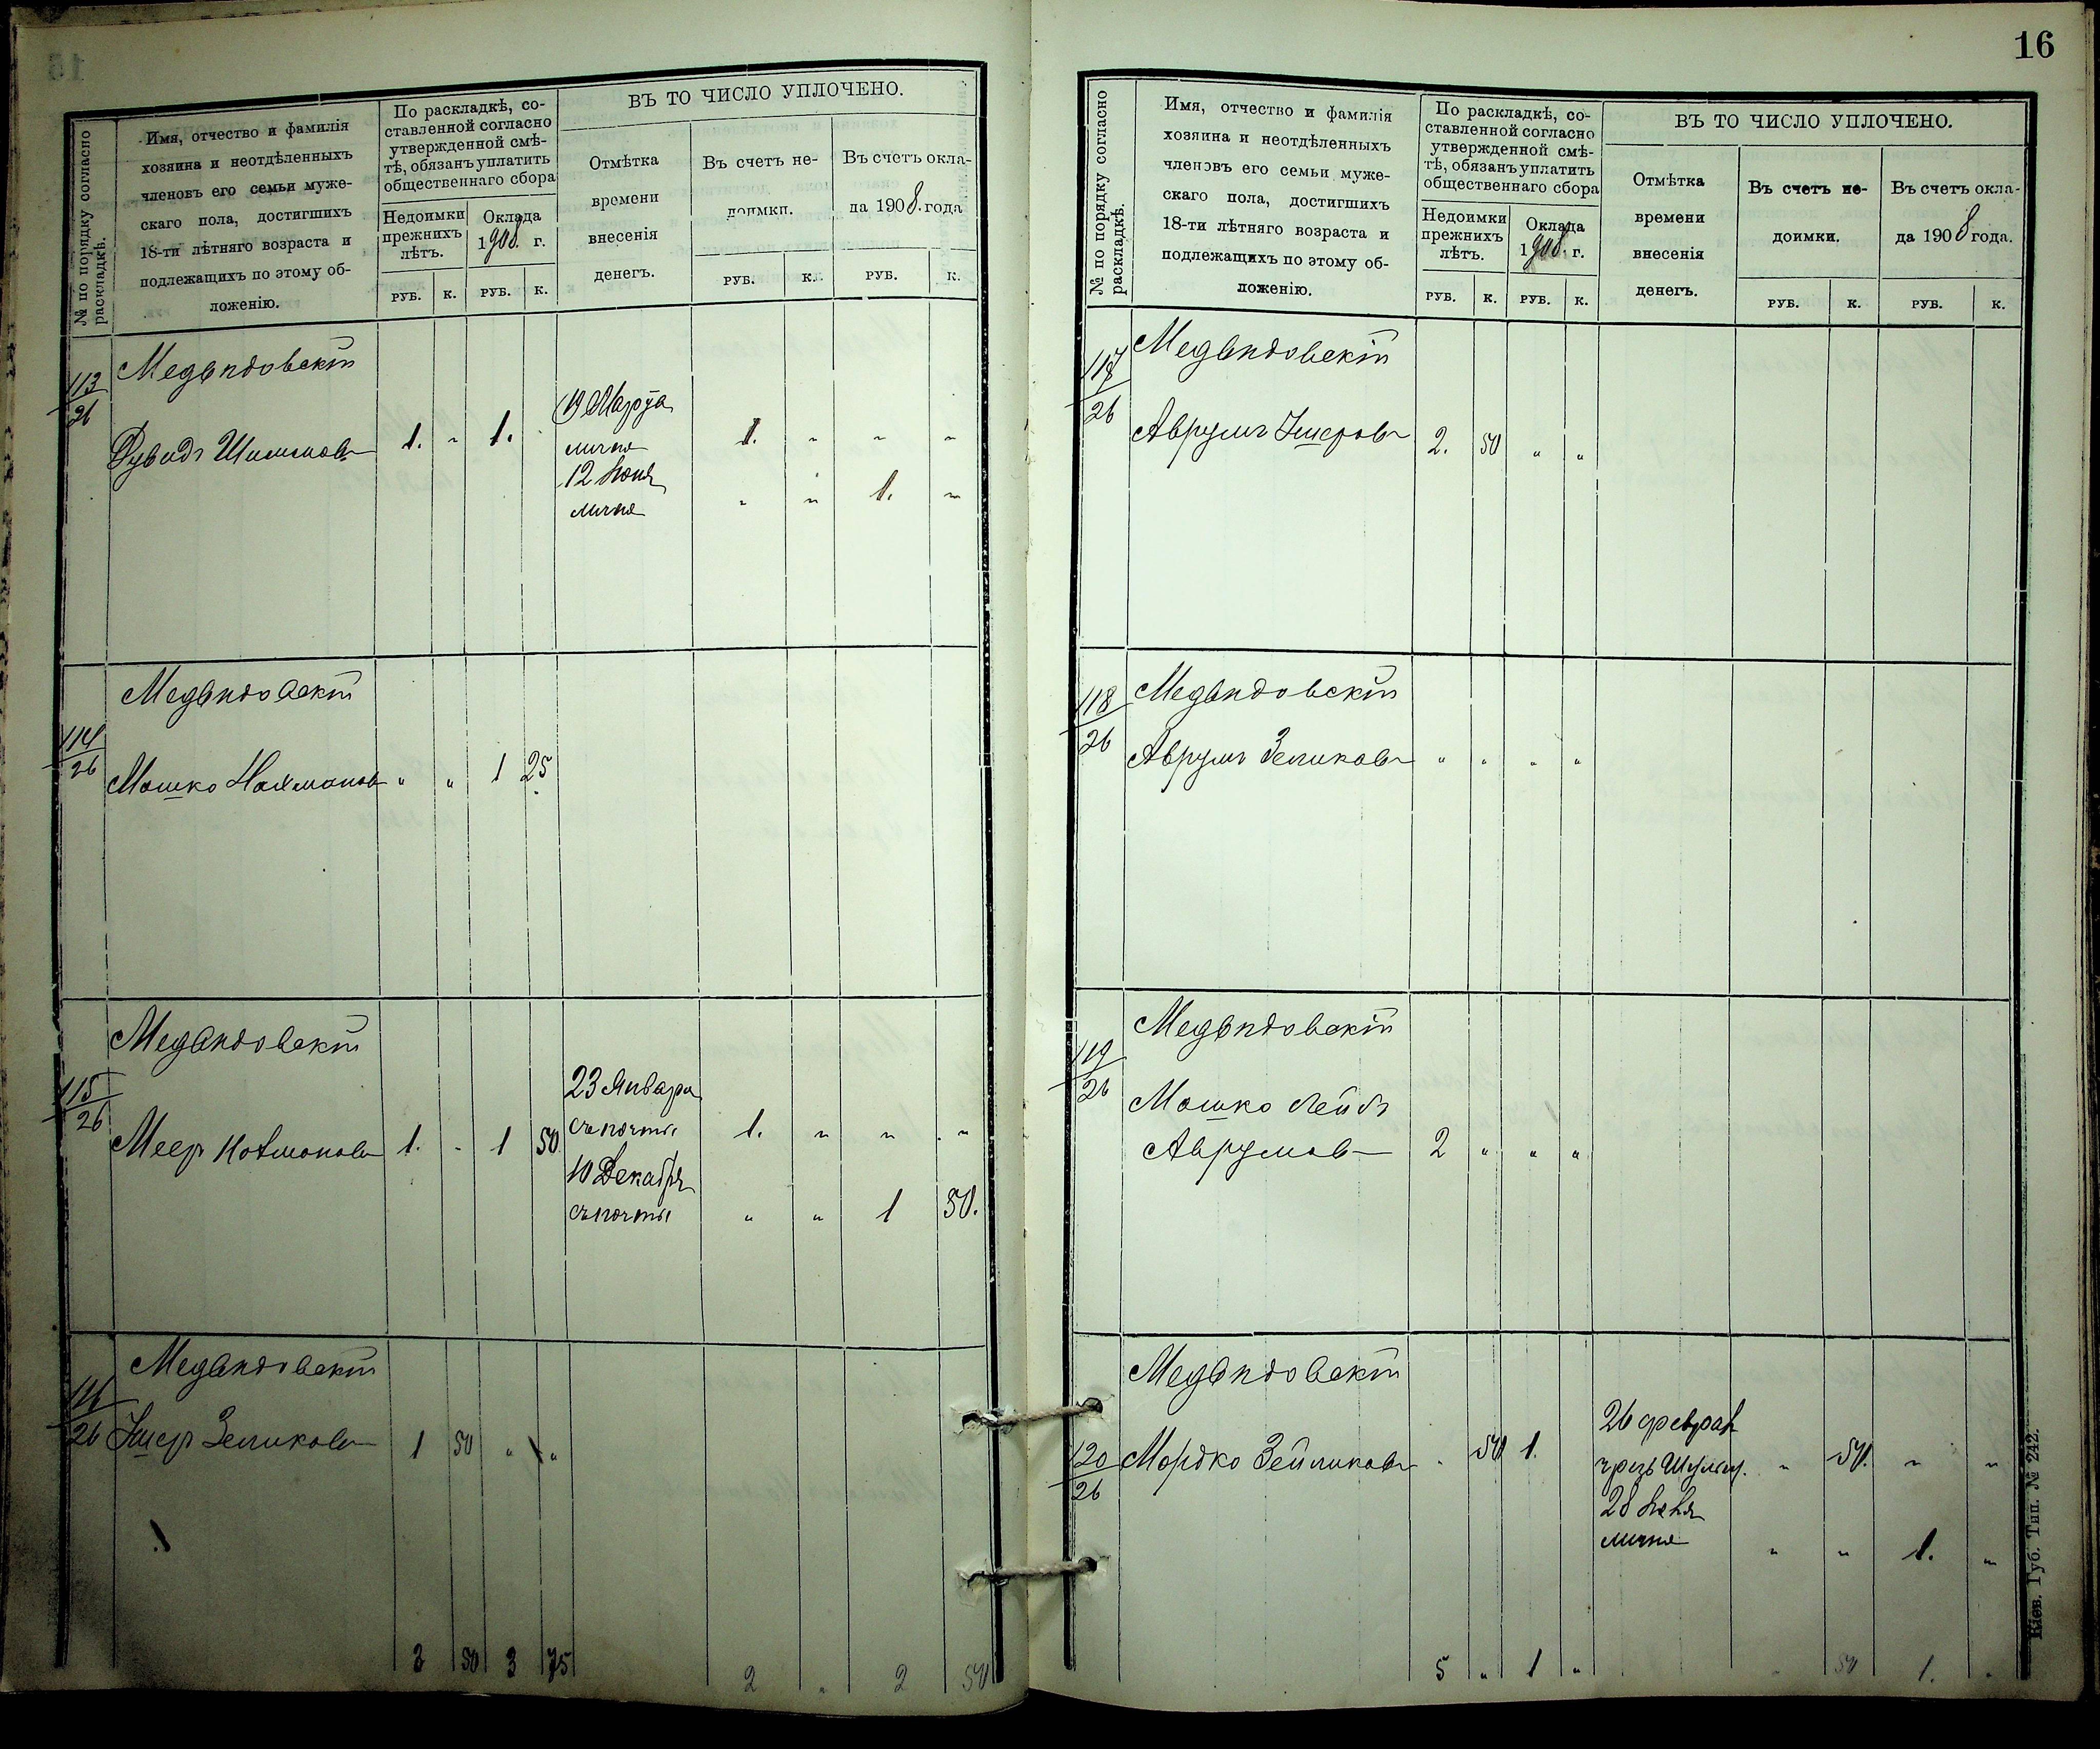 16
№ по порядку согласно раскладкѣ.
Имя, отчество и фамилія
хозяина и неотдѣленныхъ
членовъ его семьи муже-
скаго пола, достигшихъ
18-ти лѣтняго возраста и
подлежащихъ по этому об-
ложенію.
По раскладкѣ, со-
ставленной согласно
утвержденной смѣ-
тѣ, обязанъ уплатить
общественнаго сбора
Недоимки
прежнихъ
лѣтъ.
Оклада
1908. г.
РУБ. К. РУБ. К.
ВЪ ТО ЧИСЛО УПЛОЧЕНО.
Отмѣтка
времени
внесенія
денегъ.
Въ счетъ не-
доимки.
РУБ. К.
Въ счетъ окла-
да 1908. года
РУБ. К.
113/26
Медвѣдовскій
19 Марта
лично
1. " 1.
1. " " "
12 Іюня
лично
" " 1. "
Медвѣдовскій
114/26
Мошко Нахманов " " 1 25
Медвѣдовскій
115/26
23 Января
Меер Нахманов 1. - 1 50
съ почты
1. " " "
10 Декабря
съ почты
" " 1 50.
Медвѣдовскій
116/26
Ушер Зеликов 1 50 " "
3 50 3 75
2 " 2 50
№ по порядку согласно раскладкѣ.
Имя, отчество и фамилія
хозяина и неотдѣленныхъ
членовъ его семьи муже-
скаго пола, достигшихъ
18-ти лѣтняго возраста и
подлежащихъ по этому об-
ложенію.
По раскладкѣ, со-
ставленной согласно
утвержденной смѣ-
тѣ, обязанъ уплатить
общественнаго сбора
Недоимки
прежнихъ
лѣтъ.
Оклада
1908. г.
РУБ. К. РУБ. К.
ВЪ ТО ЧИСЛО УПЛОЧЕНО.
Отмѣтка
времени
внесенія
денегъ.
Въ счетъ не-
доимки.
РУБ. К.
Въ счетъ окла-
да 1908 года.
РУБ. К.
Медвѣдовскій
117/26
Аврумъ Ушеров 2. 50 " "
Медвѣдовскій
118/26
Аврумъ Зеликов " " " "
Медвѣдовскій
119/26
Мошко Лейбъ
Аврумов 2 " " "
Медвѣдовскій
120/26
26 феврал
Мордко Зейликов " 50 1.
чрезъ
" 50. " "
28 Іюня
лично
" " 1. "
5 " 1 "
" 50 1. "
Кіев. Губ. Тип. № 242.